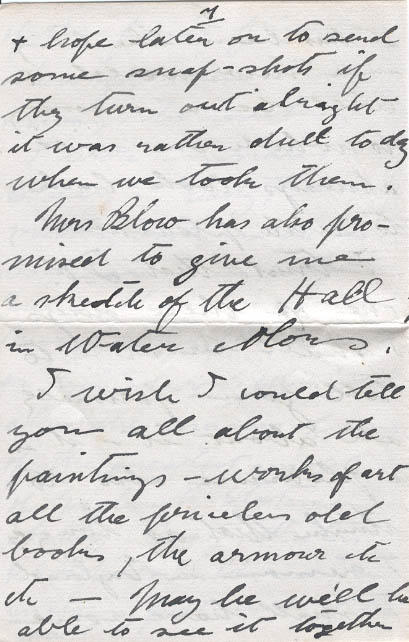 7
+ hope later on to send
some snap-shots if
they turn out alright
it was rather dull today
when we took them.
Mrs Blow has also pro-
mised to give me
a sketch of the Hall,
in Water Colours.
I wish I could tell
you all about the
paintings – works of art
all the priceless old
books, the armour etc
etc — May be we'll be
able to see it together